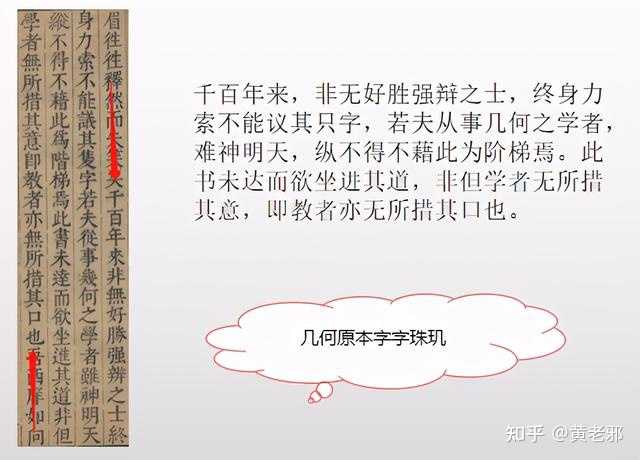 眉徃徃釋然而千百年來非無好勝强辨之士終
身力索不能議其隻字若夫從事幾何之學者雖神明天
縱不得不藉此為階梯焉此書未達而欲坐進其道非但
學者無所措其意即教者亦無所措其口也吾西庠如向
千百年来，非无好胜强辩之士，终身力
索不能议其只字，若夫从事几何之学者，
难神明天，纵不得不藉此为阶梯焉。此
书未达而欲坐进其道，非但学者无所措
其意，即教者亦无所措其口也。
几何原本字字珠玑
知乎 @黄老邪